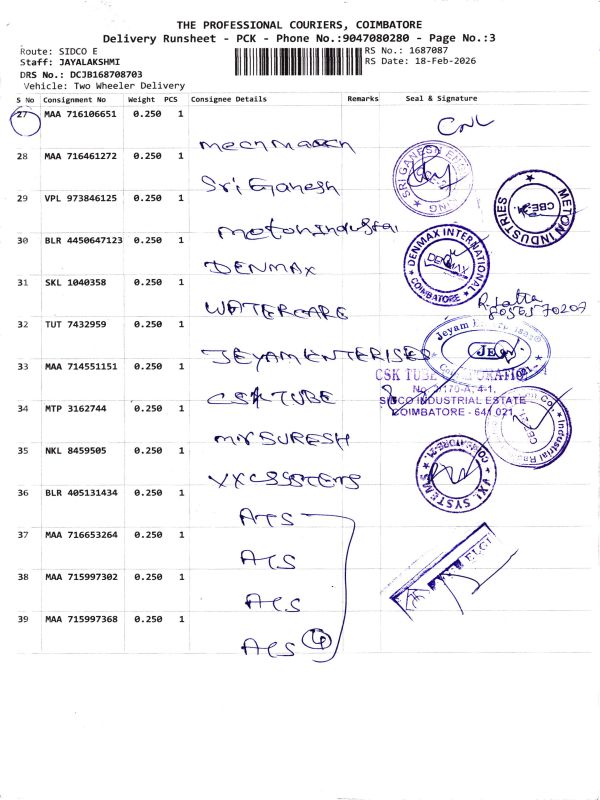 THE PROFESSIONAL COURIERS, COIMBATORE
Delivery Runsheet - PCK - Phone No.:9047080280 - Page No.:3
Route: SIDCO E
RS No.: 1687087
Staff: JAYALAKSHMI
RS Date: 18-Feb-2026
DRS No.: DCJB168708703
Vehicle: Two Wheeler Delivery
S No Consignment No Weight PCS Consignee Details Remarks Seal & Signature
27 MAA 716106651 0.250 1
28 MAA 716461272 0.250 1
Sri Ganesh
SRI GANESH
29 VPL 973846125 0.250 1
METON INDUSTRIES
CBE
30 BLR 4450647123 0.250 1
DENMAX
DENMAX INTERNATIONAL
DENMAX
COIMBATORE
31 SKL 1040358 0.250 1
WATERCARE
R. Latha
32 TUT 7432959 0.250 1
JEYAM ENTERISES
Jeyam
33 MAA 714551151 0.250 1
CSK TUBE
CSK TUBE
SIDCO INDUSTRIAL ESTATE
COIMBATORE - 641 021
34 MTP 3162744 0.250 1
MR SURESH
35 NKL 8459505 0.250 1
VXL SYSTEMS
COIMBATORE-21
36 BLR 405131434 0.250 1
ATS
37 MAA 716653264 0.250 1
ATS
ELGI
38 MAA 715997302 0.250 1
ATS
39 MAA 715997368 0.250 1
ATS 4